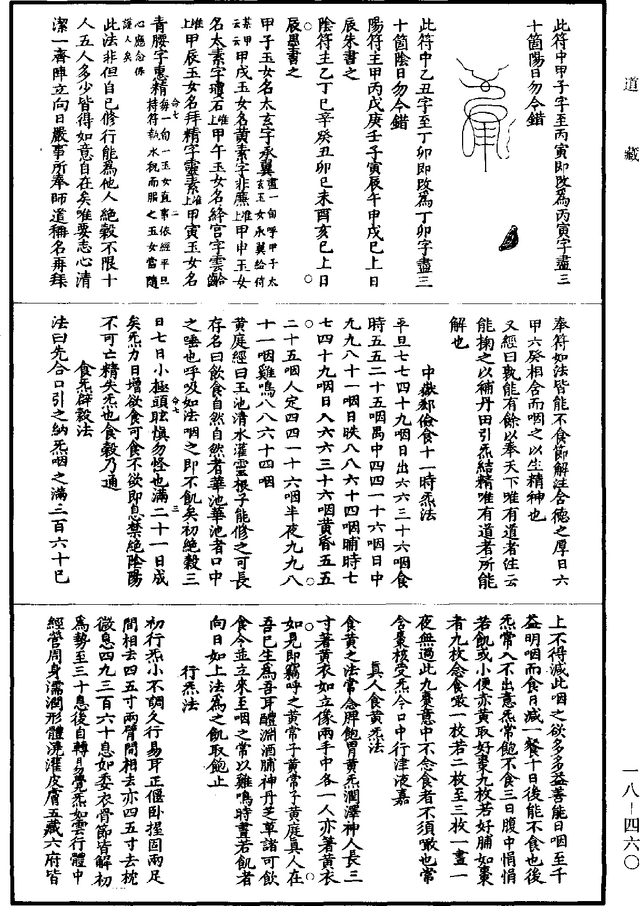 道藏
此符中甲子字至丙寅即改為丙寅字盡三
十箇陽日勿令錯
此符中乙丑字至丁卯即改為丁卯字盡三
十箇陰日勿令錯
陽符主甲丙戊庚壬子寅辰午申戌已上日
辰朱書之
陰符主乙丁巳辛癸丑卯巳未酉亥已上日
辰墨書之
甲子玉女名太玄字承翼盡一旬呼甲子太玄玉女承翼給侍
若甲云云甲戌玉女名黃素字非廉上准甲申玉女
名太素字瓊石上准甲午玉女名絳宮字雲齡
上准甲辰玉女名拜精字靈素上准甲寅玉女名
青腰字惠精每一旬一玉女直事依經平旦持符執水祝而服之玉女當隨
心應念保護人矣
此法非但自已修行能為他人絕穀不限十
人五人多少皆得如意自在矣唯要志心清
潔一齊陣立向日嚴事所奉師道稱名再拜
奉符如法皆能不食節解注含德之厚日六
甲六癸相含而咽之以生精神也
又經曰孰能有餘以奉天下唯有道者注云
能掬之以補丹田引炁結精唯有道者所能
解也
中嶽郄儉食十一時炁法
平旦七七四十九咽日出六六三十六咽食
時五五二十五咽禺中四四一十六咽日中
九九八十一咽日昳八八六十四咽晡時七
七四十九咽日入六六三十六咽黃昏五五
二十五咽人定四四一十六咽半夜九九八
十一咽雞鳴八八六十四咽
黃庭經曰玉池清水灌靈根子能修之可長
存名曰飲食自然自然者華池華池者口中
之唾也呼吸如法咽之即不飢矣初絕穀三
日七日小極頭眩慎勿怪也滿二十一日成
矣炁力日增欲食可食不欲即息禁絕陰陽
不可亡精失炁也食穀乃通
食炁辟穀法
法曰先合口引之納炁咽之滿三百六十已
上不得減此咽之欲多多益善能日咽至千
益明咽而食月減一餐十日後能不食也後
炁常入不出意炁常飽不食三日腹中悁悁
若飢或小便亦黃取好棗九枚若好脯如棗
者九枚念食噉一枚若二枚至三枚一晝一
夜無過此九棗意中不念食者不須噉也常
含棗核受炁令口中行津液嘉
真人食黃炁法
食黃之法常念脾飽胃黃炁潤澤神人長三
寸著黃衣如立像兩手中各一人亦著黃衣
如見即竊呼之黃常子黃常子黃庭真人在
吾已生為吾耳醴淵酒脯神丹芝草諸可飲
食令並立來至咽之常以雞鳴時晝若飢者
向日如上法為之飢取飽止
行炁法
初行炁小不調久行易耳正偃卧握固兩足
間相去四五寸兩臂間相去亦四五寸去枕
微息四九三百六十息如委衣骨節皆解初
為勢至三十息後自轉易覺炁如雲行體中
經營周身濡潤形體澆灌皮膚五藏六府皆
一八-四六〇